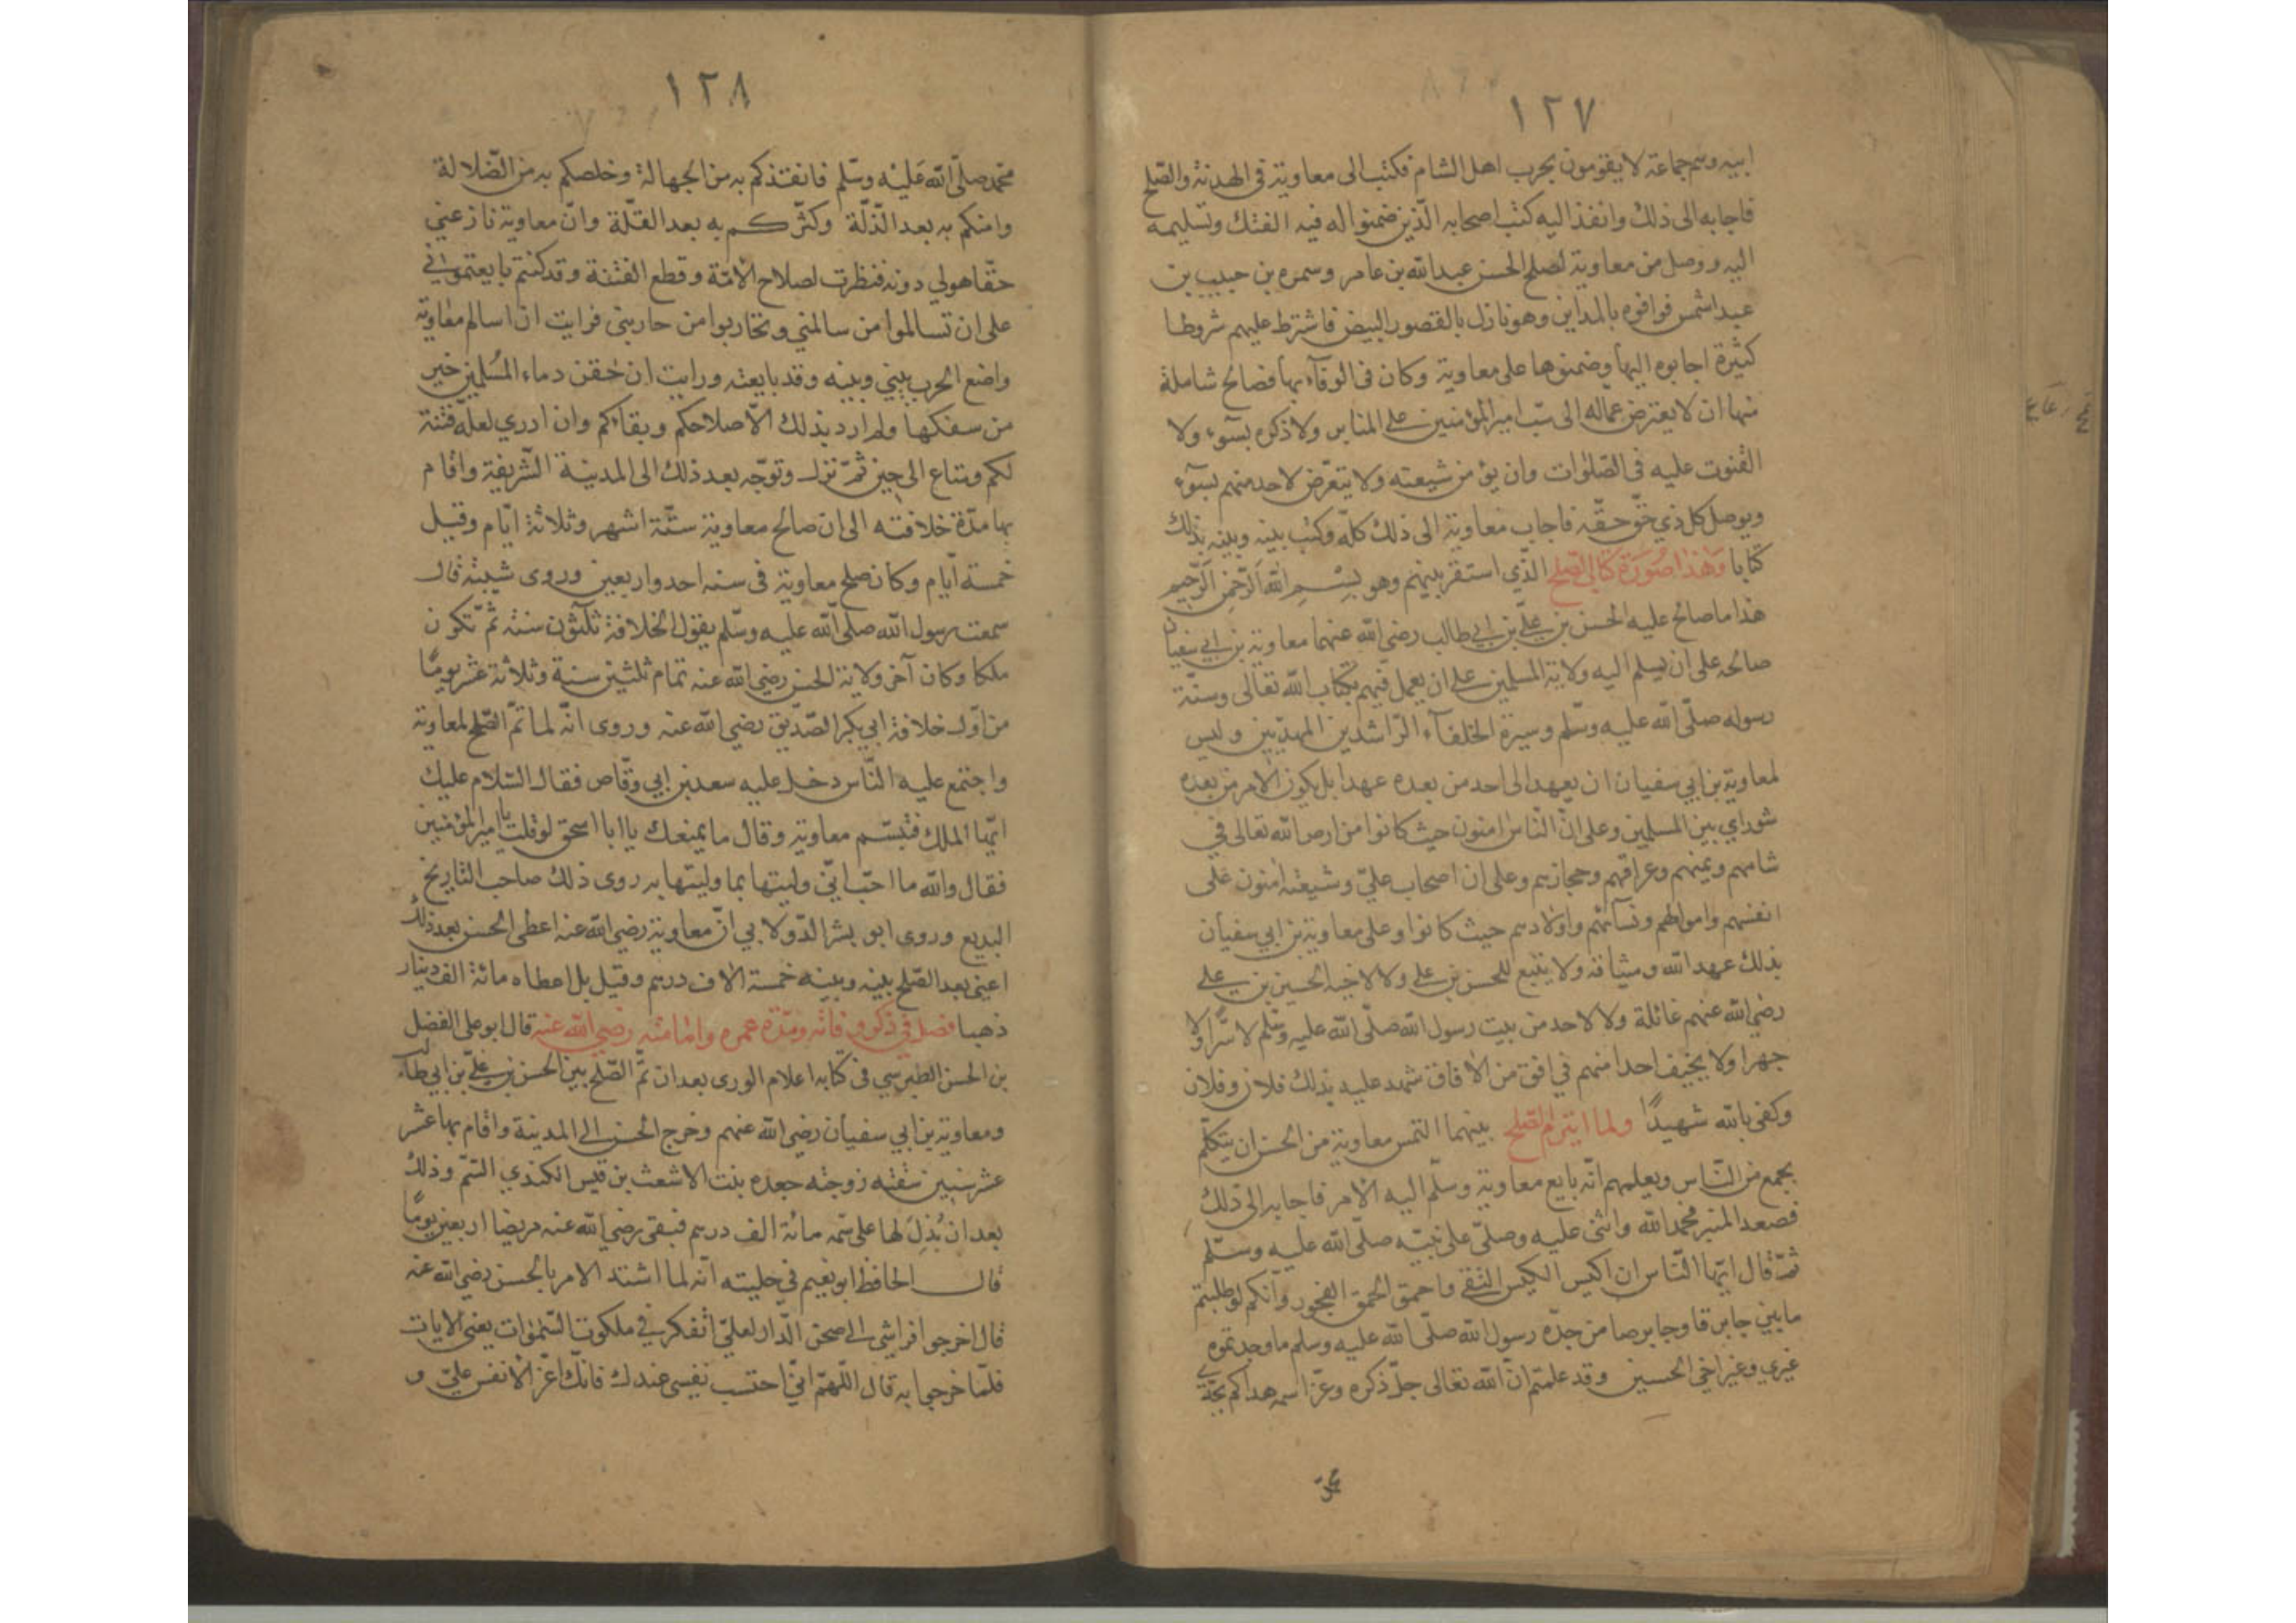 ١٢٧
ابيه وهم جماعة لا يقومون بحرب اهل الشام فكتب الى معاوية في الهدنة والصلح
فاجابه الى ذلك وانفذ اليه كتب اصحابه الّذين ضمنوا له فيه الفتك وتسليمه
اليه ووصل من معاوية لصلح الحسن عبدالله بن عامر وسمره بن حبيب بن
عبد شمس فوافوه بالمداين وهو نازل بالقصور البيض فاشترط عليهم شروطا
كثيرة اجابوه اليها وضمنوها على معاوية وكان في الوفآء بها مصالح شاملة
منها ان لا يعترض عماله الى سبّ امير المؤمنين على المنابر ولا ذكره بسوء ولا
القنوت عليه في الصّلوات وان يؤمن شيعته ولا يتعرّض لاحد منهم بسوء
ويوصل كل ذي حقّ حقّه فاجاب معاوية الى ذلك كلّه وكتب بينه وبينه بذلك
كتابا وهذا صورة كتاب الصلح الّذي استقر بينهم وهو بسم الله الرّحمن الرّحيم
هذا ما صالح عليه الحسن بن عليّ بن ابي طالب رضي الله عنهما معاوية بن ابي سفيان
صالحه على ان يسلم اليه ولاية المسلمين على ان يعمل فيهم بكتاب الله تعالى وسنّة
رسوله صلّى الله عليه وسلّم وسيرة الخلفآء الرّاشدين المهديّين وليس
لمعاوية بن ابي سفيان ان يعهد الى احد من بعده عهدا بل يكون الامر من بعده
شوراي بين المسلمين وعلى انّ النّاس امنون حيث كانوا من ارض الله تعالى في
شامهم ويمنهم وعراقهم وحجازهم وعلى ان اصحاب عليّ وشيعته امنون على
انفسهم واموالهم ونسآئهم واولادهم حيث كانوا وعلى معاوية بن ابي سفيان
بذلك عهد الله وميثاقه ولا يتبع للحسن بن علي ولا لاخيه الحسين بن علي
رضي الله عنهم غائلة ولا لاحد من بيت رسول الله صلّى الله عليه وسلّم لا سرّا ولا
جهرا ولا يخيف احدا منهم في افق من الافاق شهد عليه بذلك فلان وفلان
وكفى بالله شهيدًا ولما انبرم الصّلح بينهما التمس معاوية من الحسن ان يتكلّم
بجمع من النّاس ويعلمهم انّه بايع معاوية وسلّم اليه الامر فاجابه الى ذلك
فصعد المنبر فحمد الله واثنى عليه وصلّى على نبيّه صلّى الله عليه وسلّم
ثمّ قال ايّها النّاس ان اكيس الكيس التقى واحمق الحمق الفجور وانّكم لو طلبتم
ما بين جابرقا وجابرصا من جدّه رسول الله صلّى الله عليه وسلم ما وجدتموه
غيري وغير اخي الحسين وقد علمتم انّ الله تعالى جلّ ذكره وعزّ اسمه هداكم بجدّي
محمّد
١٢٨
محمّد صلّى الله عليه وسلّم فانقذكم به من الجهالة وخلصكم به من الضّلالة
وامنكم به بعد الذّلّة وكثّركم به بعد القلّة وانّ معاوية نازعني
حقّا هو لي دونه فنظرت لصلاح الامّة وقطع الفتنة وقد كنتم بايعتموني
على ان تسالموا من سالمني وتحاربوا من حاربني فرايت ان اسالم معاوية
واضع الحرب بيني وبينه وقد بايعته ورايت ان حقن دماء المسلمين خير
من سفكها ولم ارد بذلك الّا صلاحكم وبقاءكم وان ادري لعلّه فتنة
لكم ومتاع الى حين ثمّ نزل وتوجّه بعد ذلك الى المدينة الشّريفة واقام
بها مدّة خلافته الى ان صالح معاوية ستّة اشهر وثلاثة ايّام وقيل
خمسة ايّام وكان صلح معاوية في سنه احد واربعين وروى شيبة قال
سمعت رسول الله صلّى الله عليه وسلّم يقول الخلافة ثلثون سنة ثمّ تكون
ملكا وكان آخر ولاية الحسن رضي الله عنه تمام ثلثين سنة وثلاثة عشر يومًا
من اوّل خلافة ابي بكر الصّدّيق رضي الله عنه وروى انّه لما تمّ الصّلح لمعاوية
واجتمع عليه النّاس دخل عليه سعد بن ابي وقّاص فقال السّلام عليك
ايّها الملك فتبسّم معاوية وقال ما يمنعك يا ابا اسحق لو قلت يا امير المؤمنين
فقال والله ما احبّ انّي وليتها بما وليتها به روى ذلك صاحب التّاريخ
البديع وروى ابو بشر الدّولابي انّ معاوية رضي الله عنه اعطى الحسن بعد ذلك
اعني بعد الصّلح بينه وبينه خمسة الاف درهم وقيل بل اعطاه مائة الف دينار
ذهبا فصل في ذكر وفاته ومدّة عمره وامامته رضي الله عنه قال ابو على الفضل
بن الحسن الطبرسي في كتابه اعلام الورى بعد ان تمّ الصّلح بين الحسن بن عليّ بن ابي طالب
ومعاوية بن ابي سفيان رضي الله عنهم وخرج الحسن الى المدينة واقام بها عشر
عشر سنين سقته زوجته جعده بنت الاشعث بن قيس الكندي السّمّ وذلك
بعد ان بُذِلَ لها على سمّه مائة الف درهم فبقى رضي الله عنه مريضا اربعين يومًا
قال الحافظ ابو نعيم في حليته انّه لما اشتد الامر بالحسن رضي الله عنه
قال اخرجوا فراشي الى صحن الدّار لعليّ اتفكر في ملكوت السّموات يعني الايات
فلمّا خرجوا به قال اللّهمّ انّي احتسب نفسي عندك فانّك اعزّ الانفس عليّ و